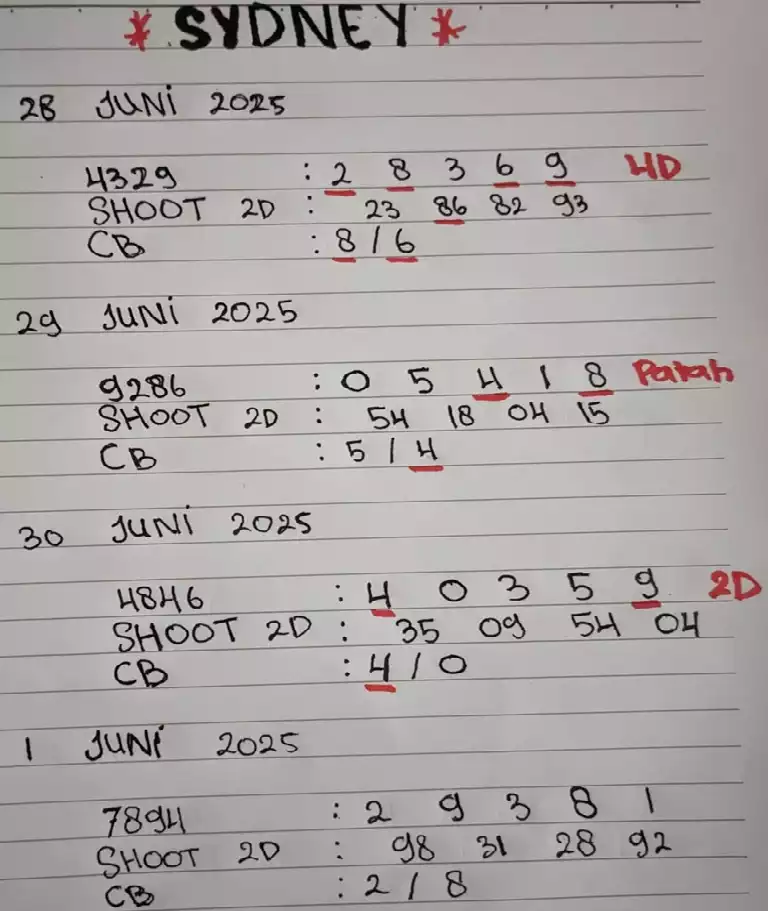 * SYDNEY *
28 JUNI 2025
4329 : 2 8 3 6 9 4D
SHOOT 2D : 23 86 82 93
CB : 8 / 6
29 JUNI 2025
9286 : 0 5 4 1 8 Patah
SHOOT 2D : 54 18 04 15
CB : 5 / 4
30 JUNI 2025
4846 : 4 0 3 5 9 2D
SHOOT 2D : 35 09 54 04
CB : 4 / 0
1 JUNI 2025
7894 : 2 9 3 8 1
SHOOT 2D : 98 31 28 92
CB : 2 / 8